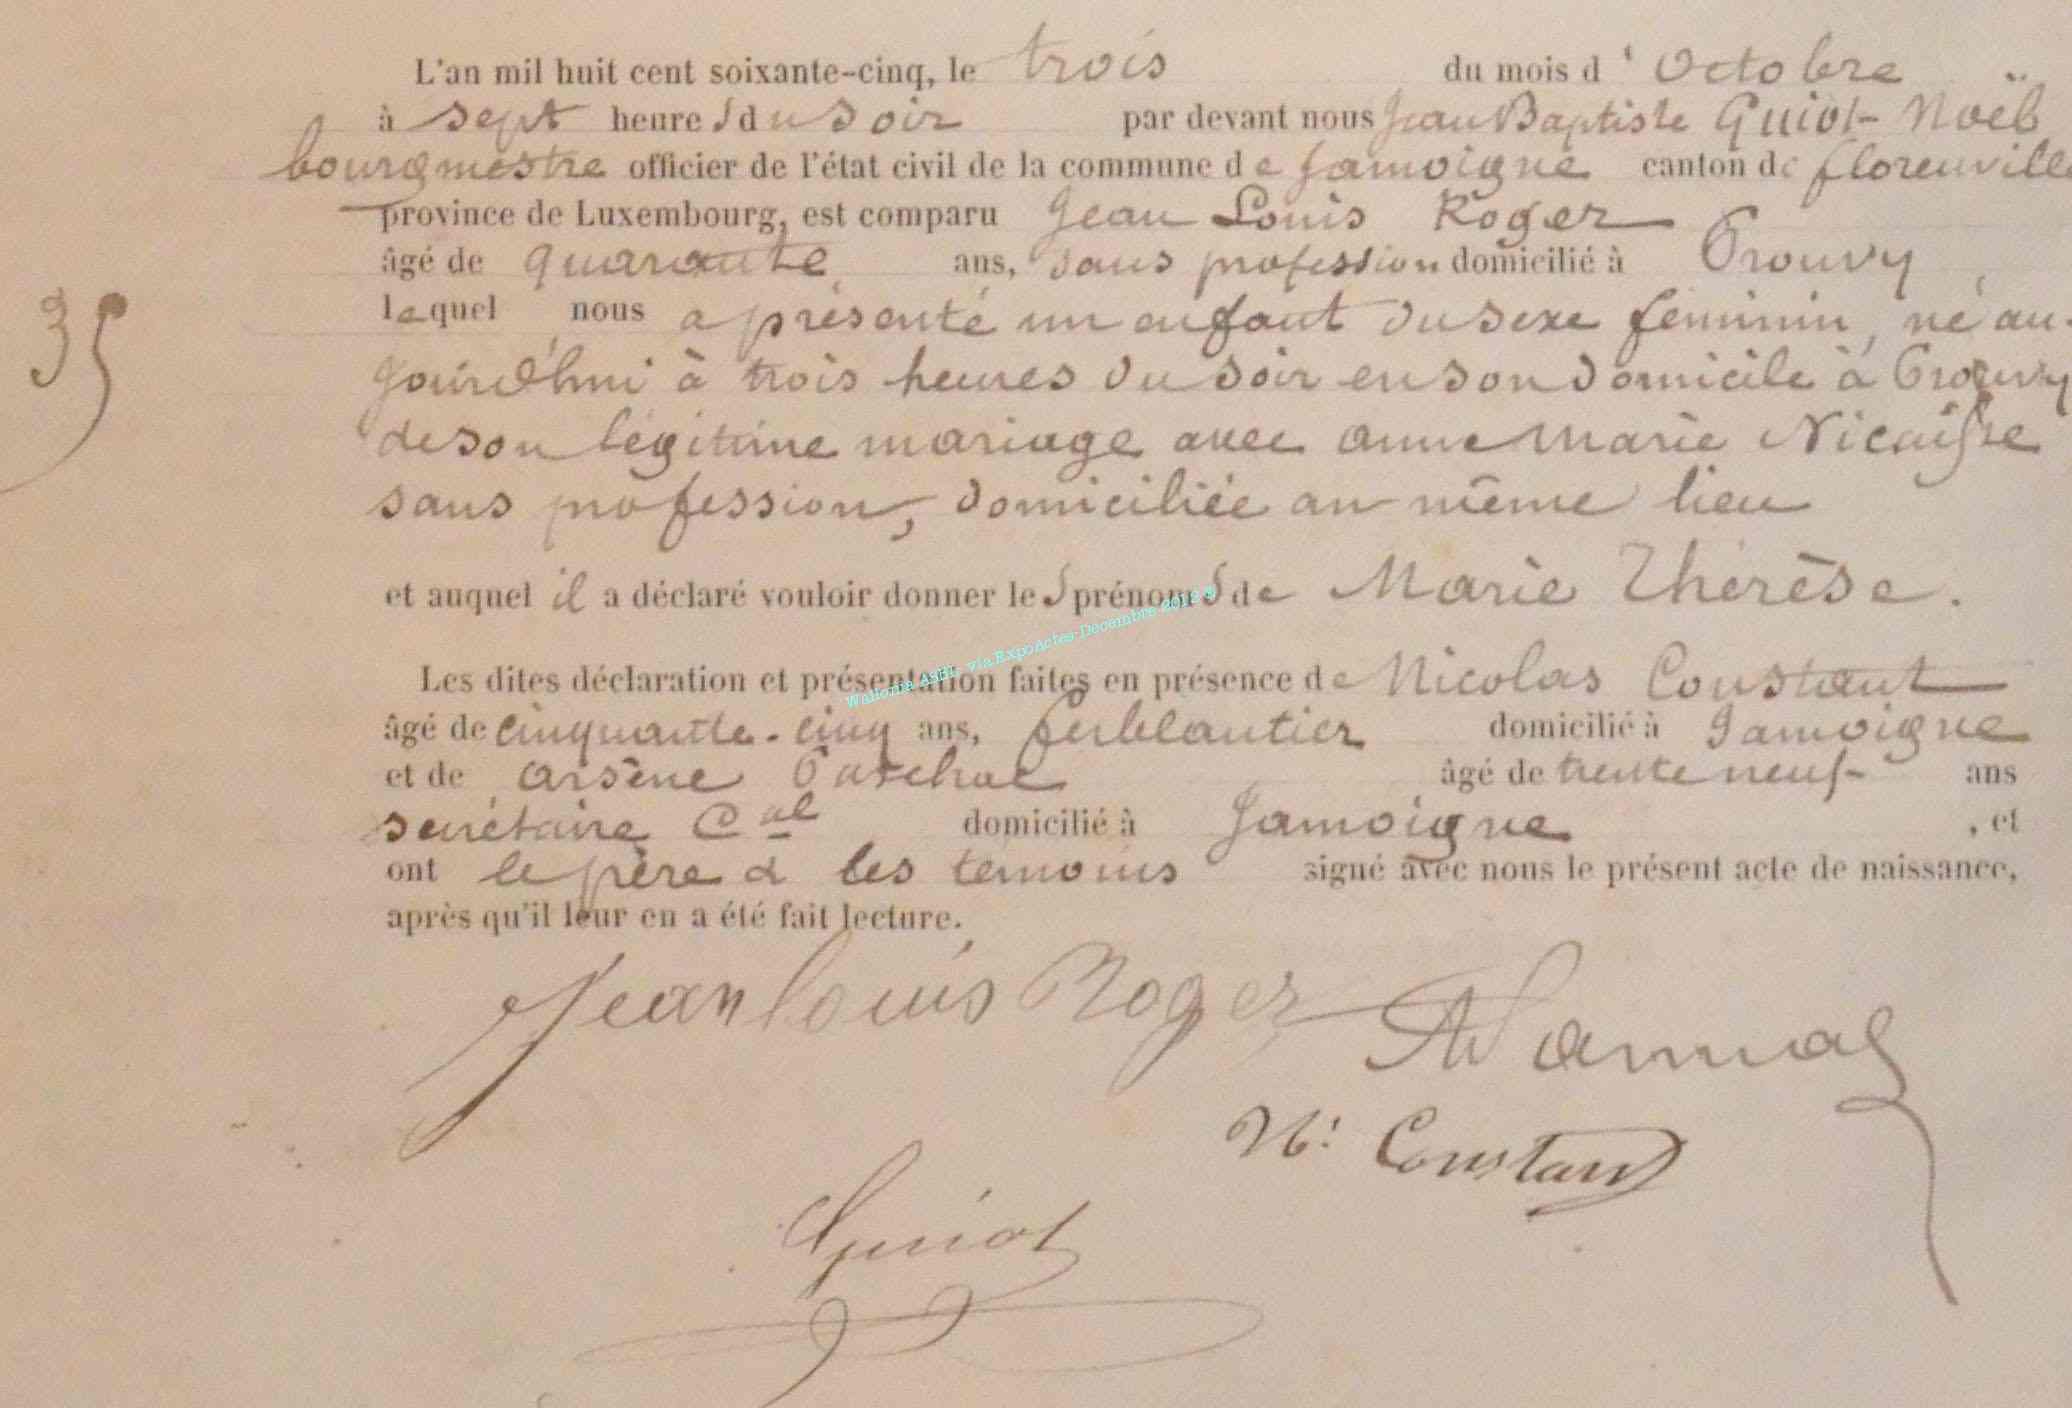 L'an mil huit cent soixante-cinq, le trois du mois d'Octobre
à sept heures du soir par devant nous Jean Baptiste Guiot-Noël
bourgmestre officier de l'état civil de la commune de Jamoigne canton de florenville
province de Luxembourg, est comparu Jean Louis Roger
âgé de quarante ans, sans profession domicilié à Prouvy,
lequel nous a présenté un enfant du sexe féminin, né au-
35
jourd'hui à trois heures du soir en son domicile à Prouvy
de son légitime mariage avec anne Marie Nicaisse
sans profession, domiciliée au même lieu
et auquel il a déclaré vouloir donner les prénoms de Marie Thérèse.
Wallonia ASBL via ExpoActes-Décembre
Les dites déclaration et présentation faites en présence de Nicolas Constant
âgé de cinquante-cinq ans, ferblantier domicilié à Jamoigne
et de arsène âgé de trente neuf ans
secrétaire Cal domicilié à Jamoigne, et
ont le père & les témoins signé avec nous le présent acte de naissance,
après qu'il leur en a été fait lecture.
Jean louis Roger
N. Constant
Guiot